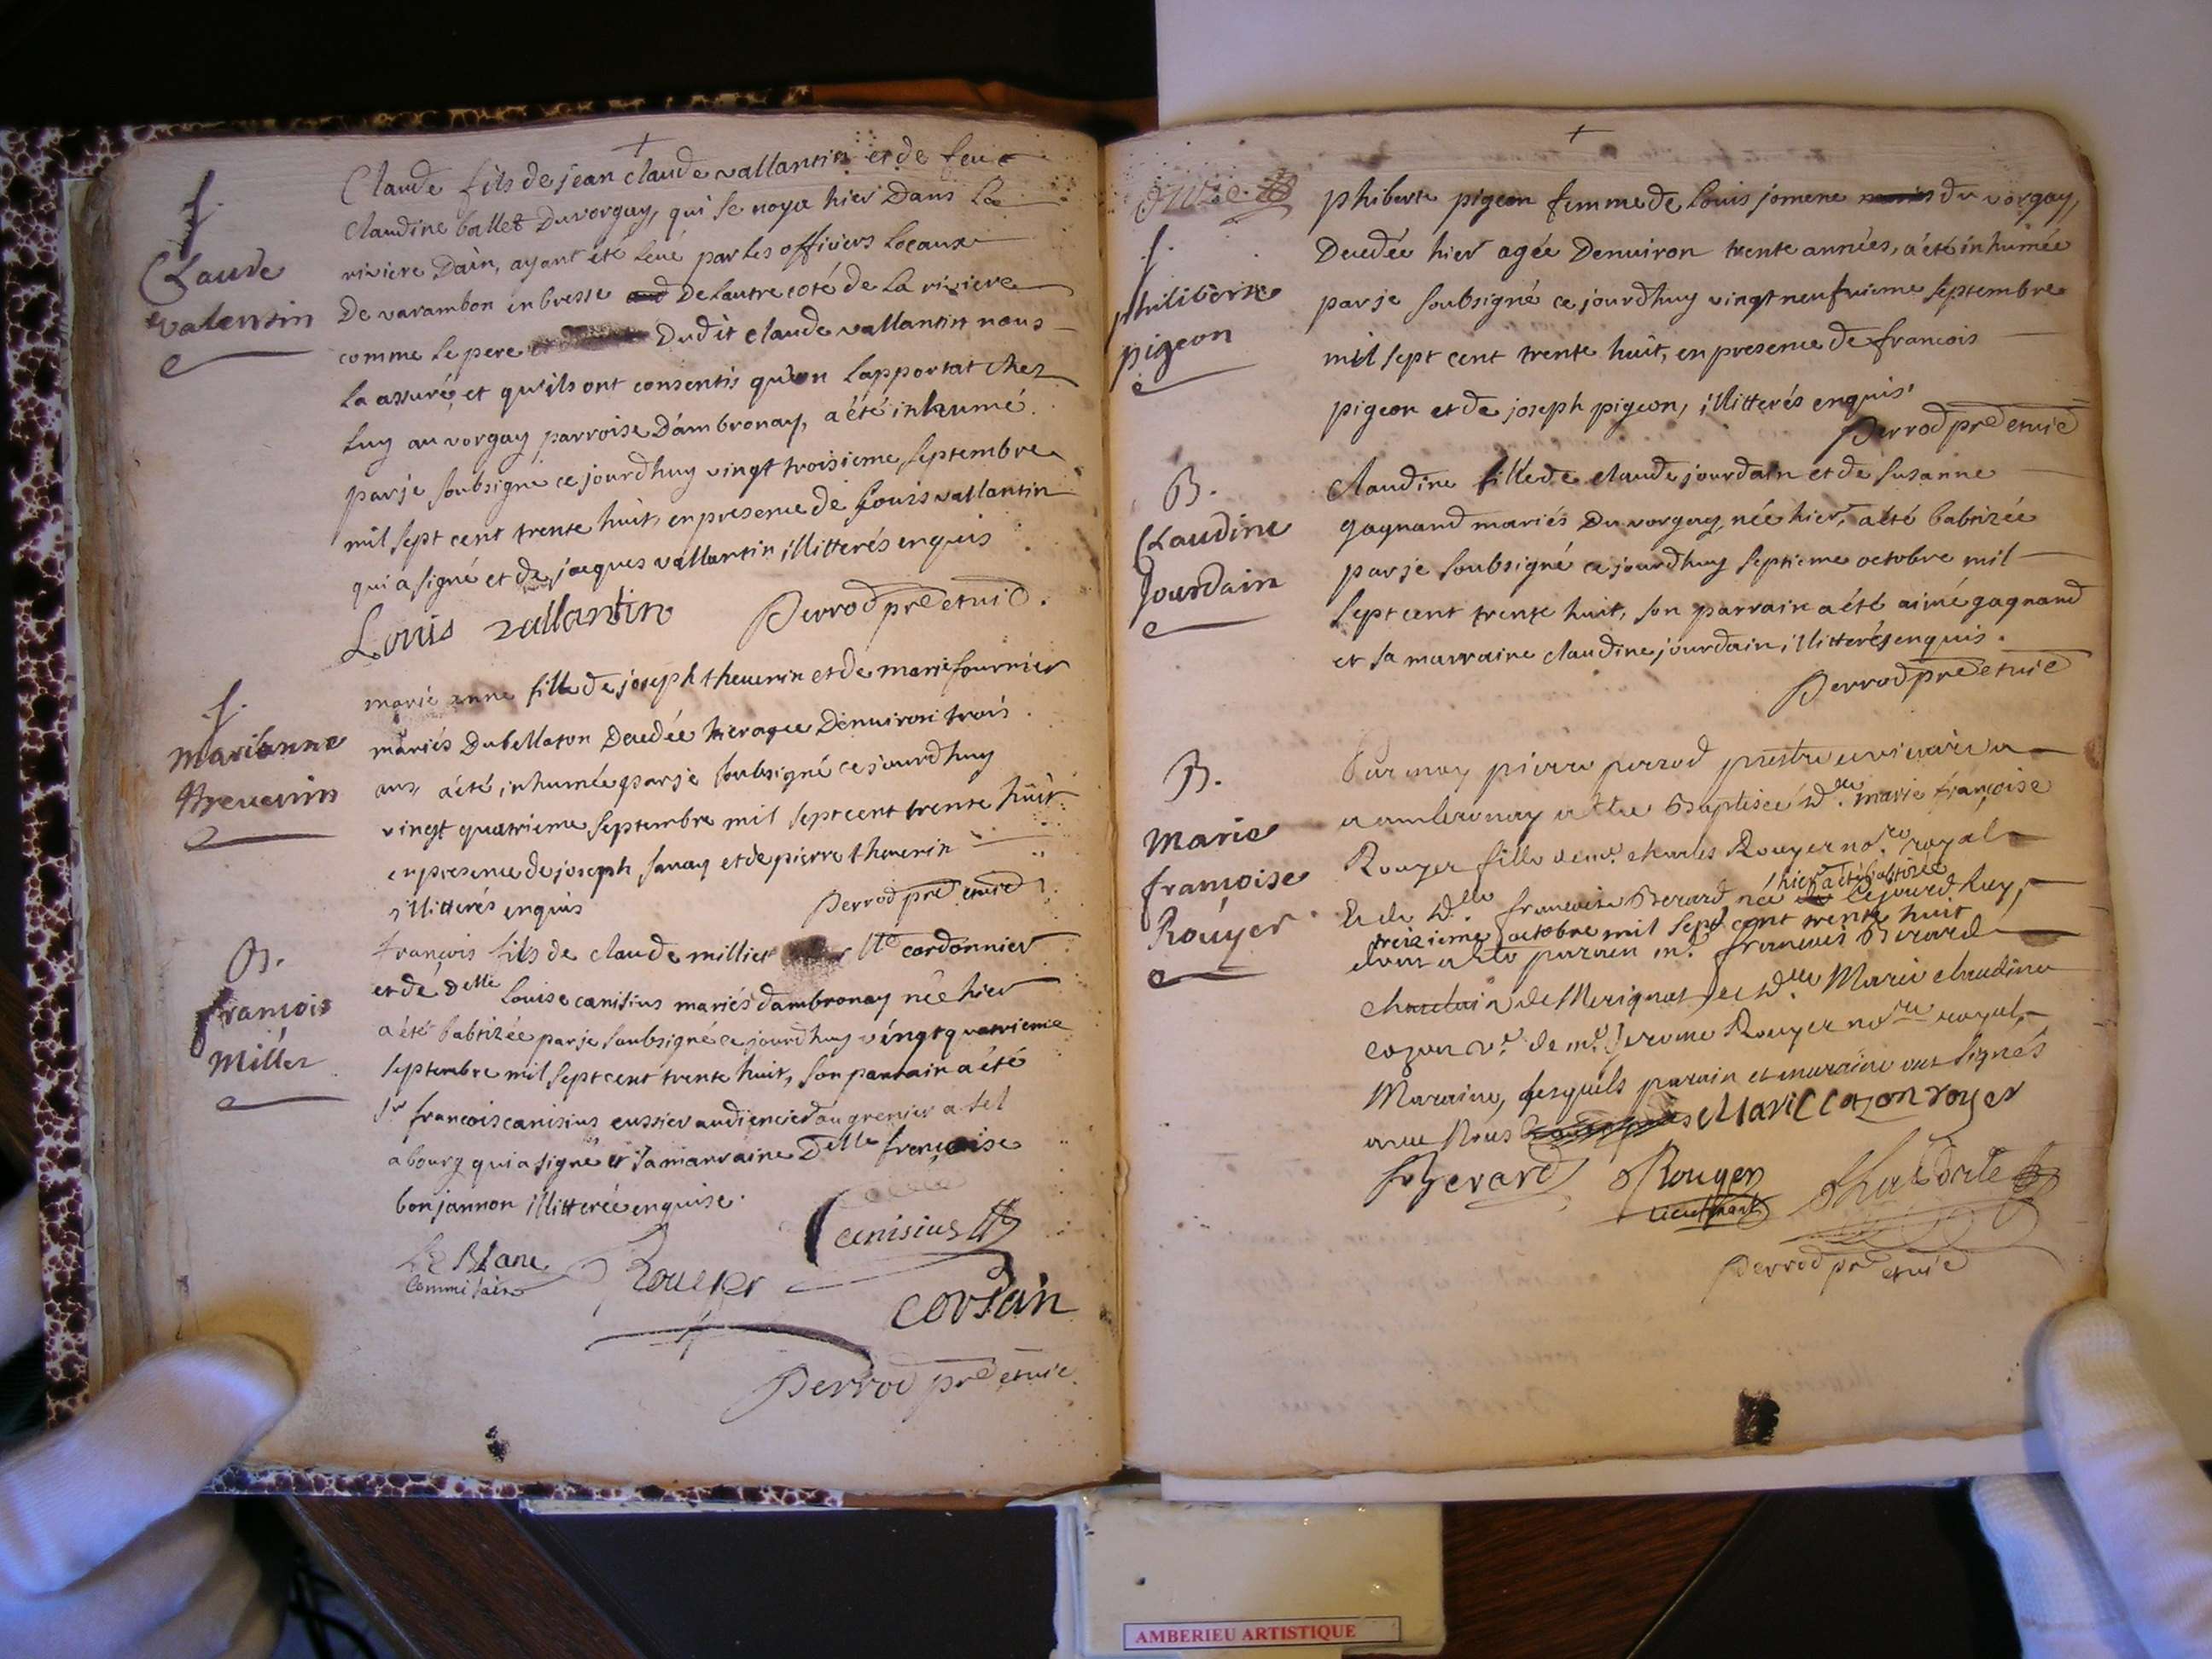 +
f.
Claude
valentin
Claude fils de jean claude vallantin et de feue
claudine ballet du vorgay, qui se noya hier dans la
riviere dain, ayant été levé par les officiers locaux
de varambon en bresse de lautre coté de la riviere
comme le pere dudit claude vallantin nous
la assuré, et qu'ils ont consentis qu'on lapportat chez
luy au vorgay parroise dambronay, a été inhumé
par je soubsigné ce jourdhuy vingt troisieme septembre
mil sept cent trente huit, en presence de Louis vallantin
qui a signé et de jacques vallantin illitterés enquis
Louis vallantin Perrod pre et vic.
f.
marianne
thevenin
marie anne fille de joseph thevenin et de marie fournier
mariés du bellaton decedée hier agee denviron trois
ans, a été inhumée par je soubsigné ce jourdhuy
vingt quatrieme septembre mil sept cent trente huit
en presence de joseph et de pierre thevenin
illitterés enquis Perrod pre et vic
B.
francois
Millet
francois fils de claude milliet cordonnier
et de delle Louise canisius mariés dambronay née hier
a été babtizée par je soubsigné ce jourdhuy vingt quatrieme
septembre mil sept cent trente huit, son parrain a été
Sr francois canisius eussier audiencier au grenier a sel
a bourg qui a signé et sa marraine delle françoise
bonjannon illitterée enquise.
Canisius
Le Blanc
Commisaire
Rouyer
Corsain
Perrod pre et vic
+
f.
philiberte
pigeon
phiberte pigeon femme de Louis jomene du vorgay,
decedée hier agée denviron trente années, a été inhumée
par je soubsigné ce jourdhuy vingt neufvieme septembre
mil sept cent trente huit, en presence de francois
pigeon et de joseph pigeon, illitterés enquis
Perrod pre et vic
B.
Claudine
Jourdain
claudine fille de claude jourdain et de susanne
gagnand mariés du vorgay, née hier, a été babtizée
par je soubsigné ce jourdhuy septieme octobre mil
sept cent trente huit, son parrain a été aimé gagnand
et sa marraine claudine jourdain, illitterés enquis.
Perrod pre et vic
B.
Marie
francoise
Rouyer
Par moy pierre perrod prestre et vicaire
a ambronay a ette Baptisée dlle. marie françoise
Rouyer fille de mr. charles Rouyer nore. royal
hier a été babtizée
Et de dlle francoise Berard née ce jourdhuy,
treizieme octobre mil sept cent trente huit
dont a ette parain mr. francois Berard
chatelain de Merignat, et dlle Marie claudine
cozon ve. de mr. Jerome Rouyer nore royal,
Maraine, lesquels parain et maraine ont signés
avec Nous Marie cozon royer
fr Berard Rouyer
lieutenant
Perrod pre
et vic
AMBERIEU ARTISTIQUE